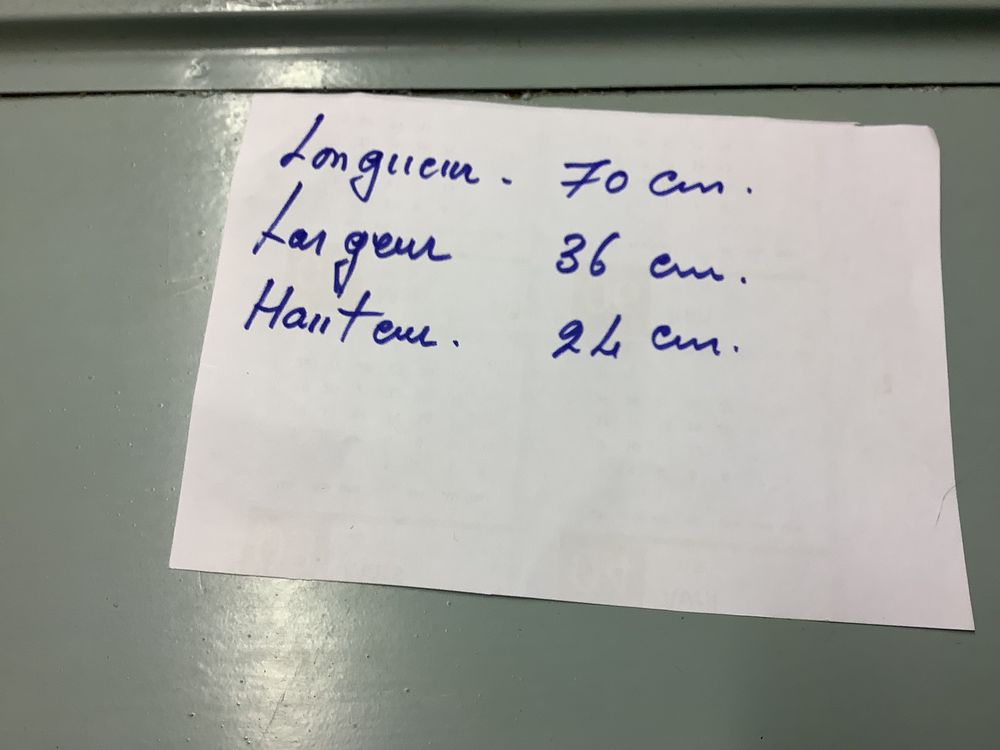 Longueur. 70 cm.
Largeur 36 cm.
Hauteur. 24 cm.